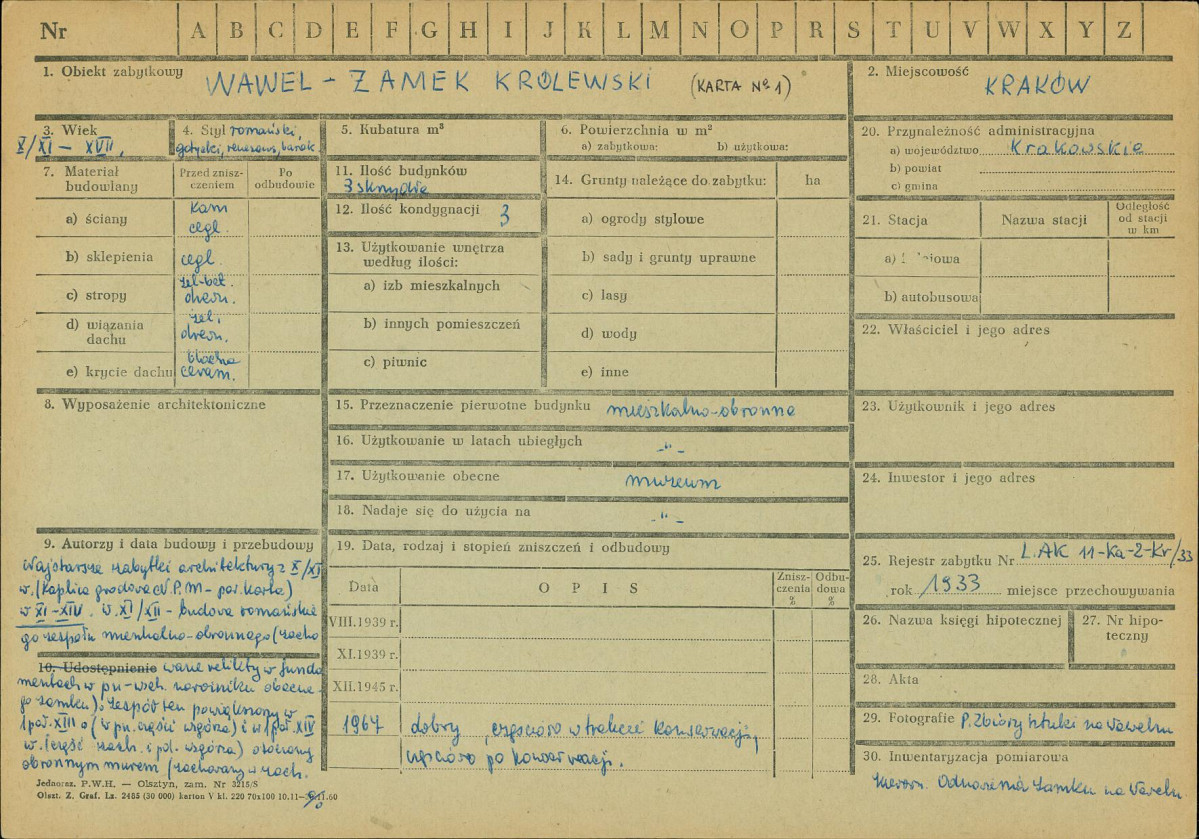 Nr A B C D E F G H I J K L M N O P R S T U V W X Y Z
1. Obiekt zabytkowy WAWEL – ZAMEK KRÓLEWSKI (KARTA Nº 1)
2. Miejscowość KRAKÓW
3. Wiek X/XI – XVII,
4. Styl romański,
gotycki, renesans, barok
5. Kubatura m³
6. Powierzchnia w m²
a) zabytkowa: b) użytkowa:
7. Materiał budowlany
Przed zniszczeniem
Po odbudowie
a) ściany kam
cegl.
b) sklepienia cegl.
c) stropy żel-bet.
drewn.
d) wiązania dachu żel.
drewn.
e) krycie dachu blacha
ceram.
8. Wyposażenie architektoniczne
9. Autorzy i data budowy i przebudowy
Najstarsze zabytki architektury z X/XI
w. (Kaplica grodowa N.P.M – par. Karta)
w XI–XIV. W. XI/XII – budowa romańskie
go zespołu mieszkalno-obronnego (zacho
10. Udostępnienie wane relikty w funda
mentach w pn-wsch. narożniku obecne-
go zamku). Zespół ten powiększony w
1 poł. XIII (w pn. części wzgórza) i w 1 poł. XIV
w. (część zach. i pd. wzgórza) otoczony
obronnym murem (zachowany w zach.
Jednoraz. P.W.H. — Olsztyn, zam. Nr 3215/S
Olszt. Z. Graf. Lz. 2485 (30 000) karton V kl. 220 70x100 10.11— 11.60
11. Ilość budynków
3 skrzydła
12. Ilość kondygnacji 3
13. Użytkowanie wnętrza
według ilości:
a) izb mieszkalnych
b) innych pomieszczeń
c) piwnic
14. Grunty należące do zabytku: ha
a) ogrody stylowe
b) sady i grunty uprawne
c) lasy
d) wody
e) inne
15. Przeznaczenie pierwotne budynku mieszkalno-obronne
16. Użytkowanie w latach ubiegłych -"-
17. Użytkowanie obecne muzeum
18. Nadaje się do użycia na -"-
19. Data, rodzaj i stopień zniszczeń i odbudowy
Data OPIS Zniszczenia % Odbudowa %
VIII.1939 r.
XI.1939 r.
XII.1945 r.
1967 dobry, częściowo w trakcie konserwacji,
częściowo po konserwacji.
20. Przynależność administracyjna
a) województwo Krakowskie
b) powiat
c) gmina
21. Stacja Nazwa stacji Odległość od stacji w km
b) autobusowa
22. Właściciel i jego adres
23. Użytkownik i jego adres
24. Inwestor i jego adres
25. Rejestr zabytku Nr L.AK 11-Ka-2-Kr/33
rok 1933 miejsce przechowywania
26. Nazwa księgi hipotecznej
27. Nr hipoteczny
28. Akta
29. Fotografie P. Zbiory Sztuki na Wawelu
30. Inwentaryzacja pomiarowa
Kierown. Odnowienia Zamku na Wawelu